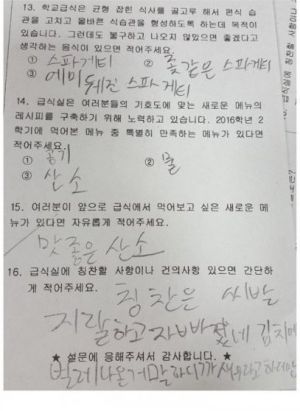 13. 학교급식은 균형 잡힌 식사를 골고루 해서 편식 습
관을 고치고 올바른 식습관을 형성하도록 하는데 목적이
있습니다. 그런데도 불구하고 나오지 않았으면 좋겠다고
생각하는 음식이 있으면 적어주세요.
① 스파게티 ② 좆같은 스파게티
③ 에미 뒈진 스파게티
14. 급식실은 여러분들의 기호도에 맞는 새로운 메뉴의
레시피를 구축하기 위해 노력하고 있습니다. 2016학년 2
학기에 먹어본 메뉴 중 특별히 만족하는 메뉴가 있다면
적어주세요.
① 공기 ② 물
③ 산소
15. 여러분이 앞으로 급식에서 먹어보고 싶은 새로운 메
뉴가 있다면 자유롭게 적어주세요.
맛 좋은 산소
16. 급식실에 칭찬할 사항이나 건의사항 있으면 간단하
게 적어주세요.
칭찬은 씨발
지랄하고 자빠졌네 김치에
★ 설문에 응해주셔서 감사합니다. ★
벌레나온게말하니까 새우라고 하더만